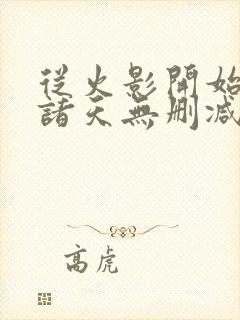 從火影開始
諸天無刪減
高虎